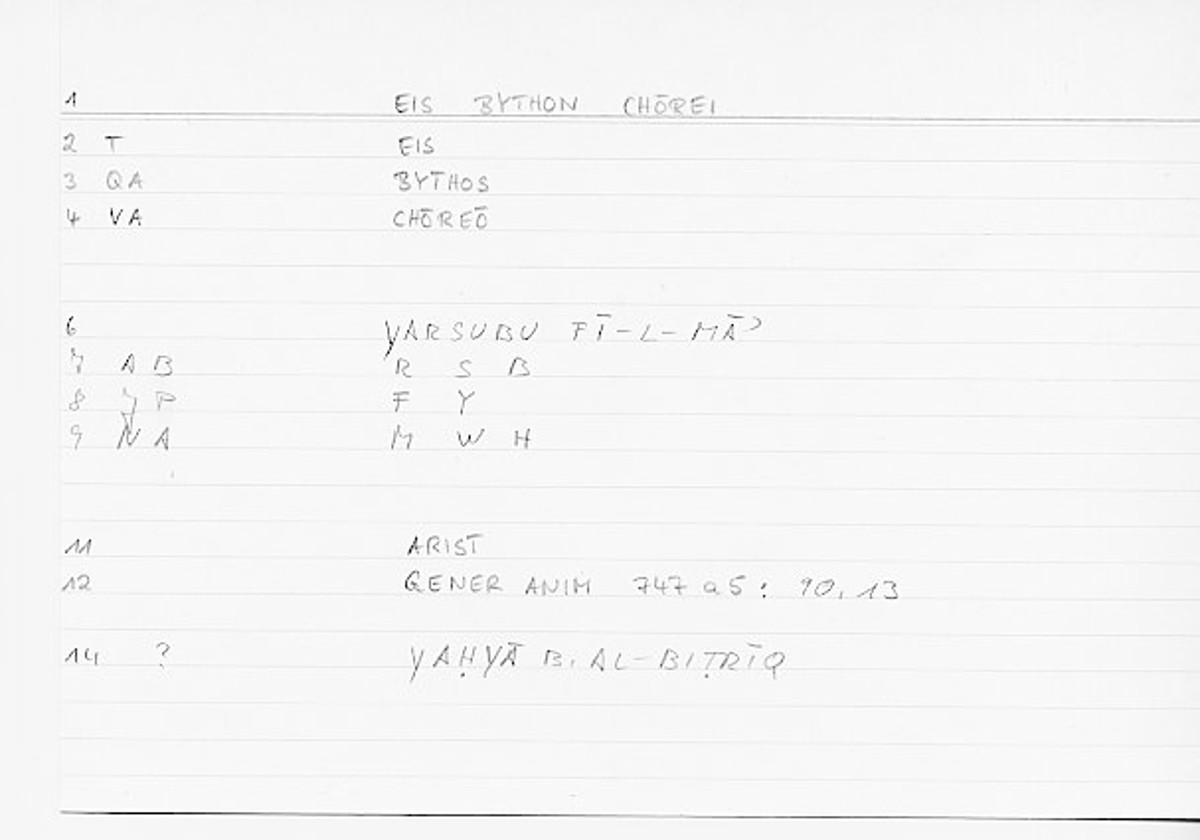 1 EIS BYTHON CHŌREI
2 T EIS
3 QA BYTHOS
4 VA CHŌREŌ
6 YARSUBU FĪ-L-MĀʾ
7 A B R S B
8 F Y
9 N A M W H
11 ARIST
12 GENER ANIM 747 a5: 90,13
14 ? YAḤYĀ B. AL-BIṬRĪQ